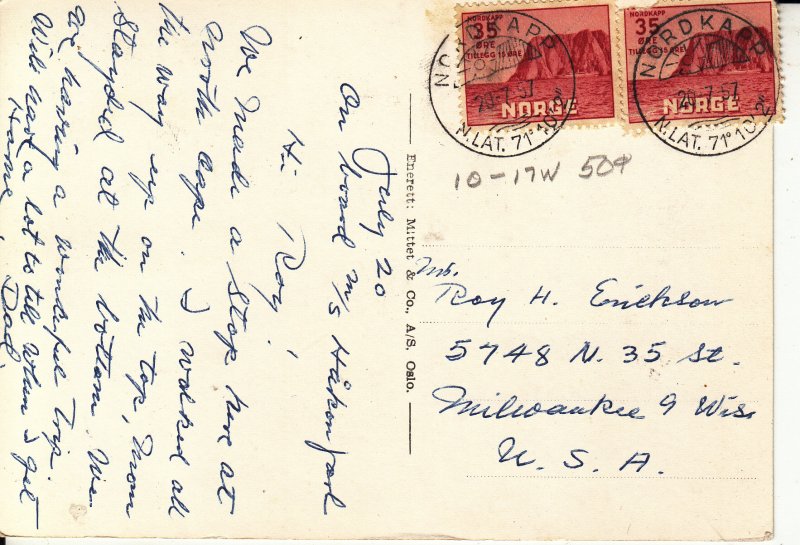 July 20
On board M/S Håkon Jarl
Hi Roy!
We made a stop here at
north cape. I walked all
the way up on the top, Mom
stayed at the bottom. We
are having a wonderful trip.
Will have a lot to tell when I get
Home, Dad.
Enerett: Mittet & Co., A/S. Oslo.
NORDKAPP
35
ØRE
TILLEGG 15 ØRE
NORGE
NORDKAPP
35
ØRE
TILLEGG 15 ØRE
NORGE
NORDKAPP
20-7.57
N.LAT. 71°10'
NORDKAPP
20-7.57
N.LAT. 71°10'
10-17W 50¢
Mr.
Roy H. Erickson
5748 N. 35 St.
Milwaukee 9 Wis.
U.S.A.